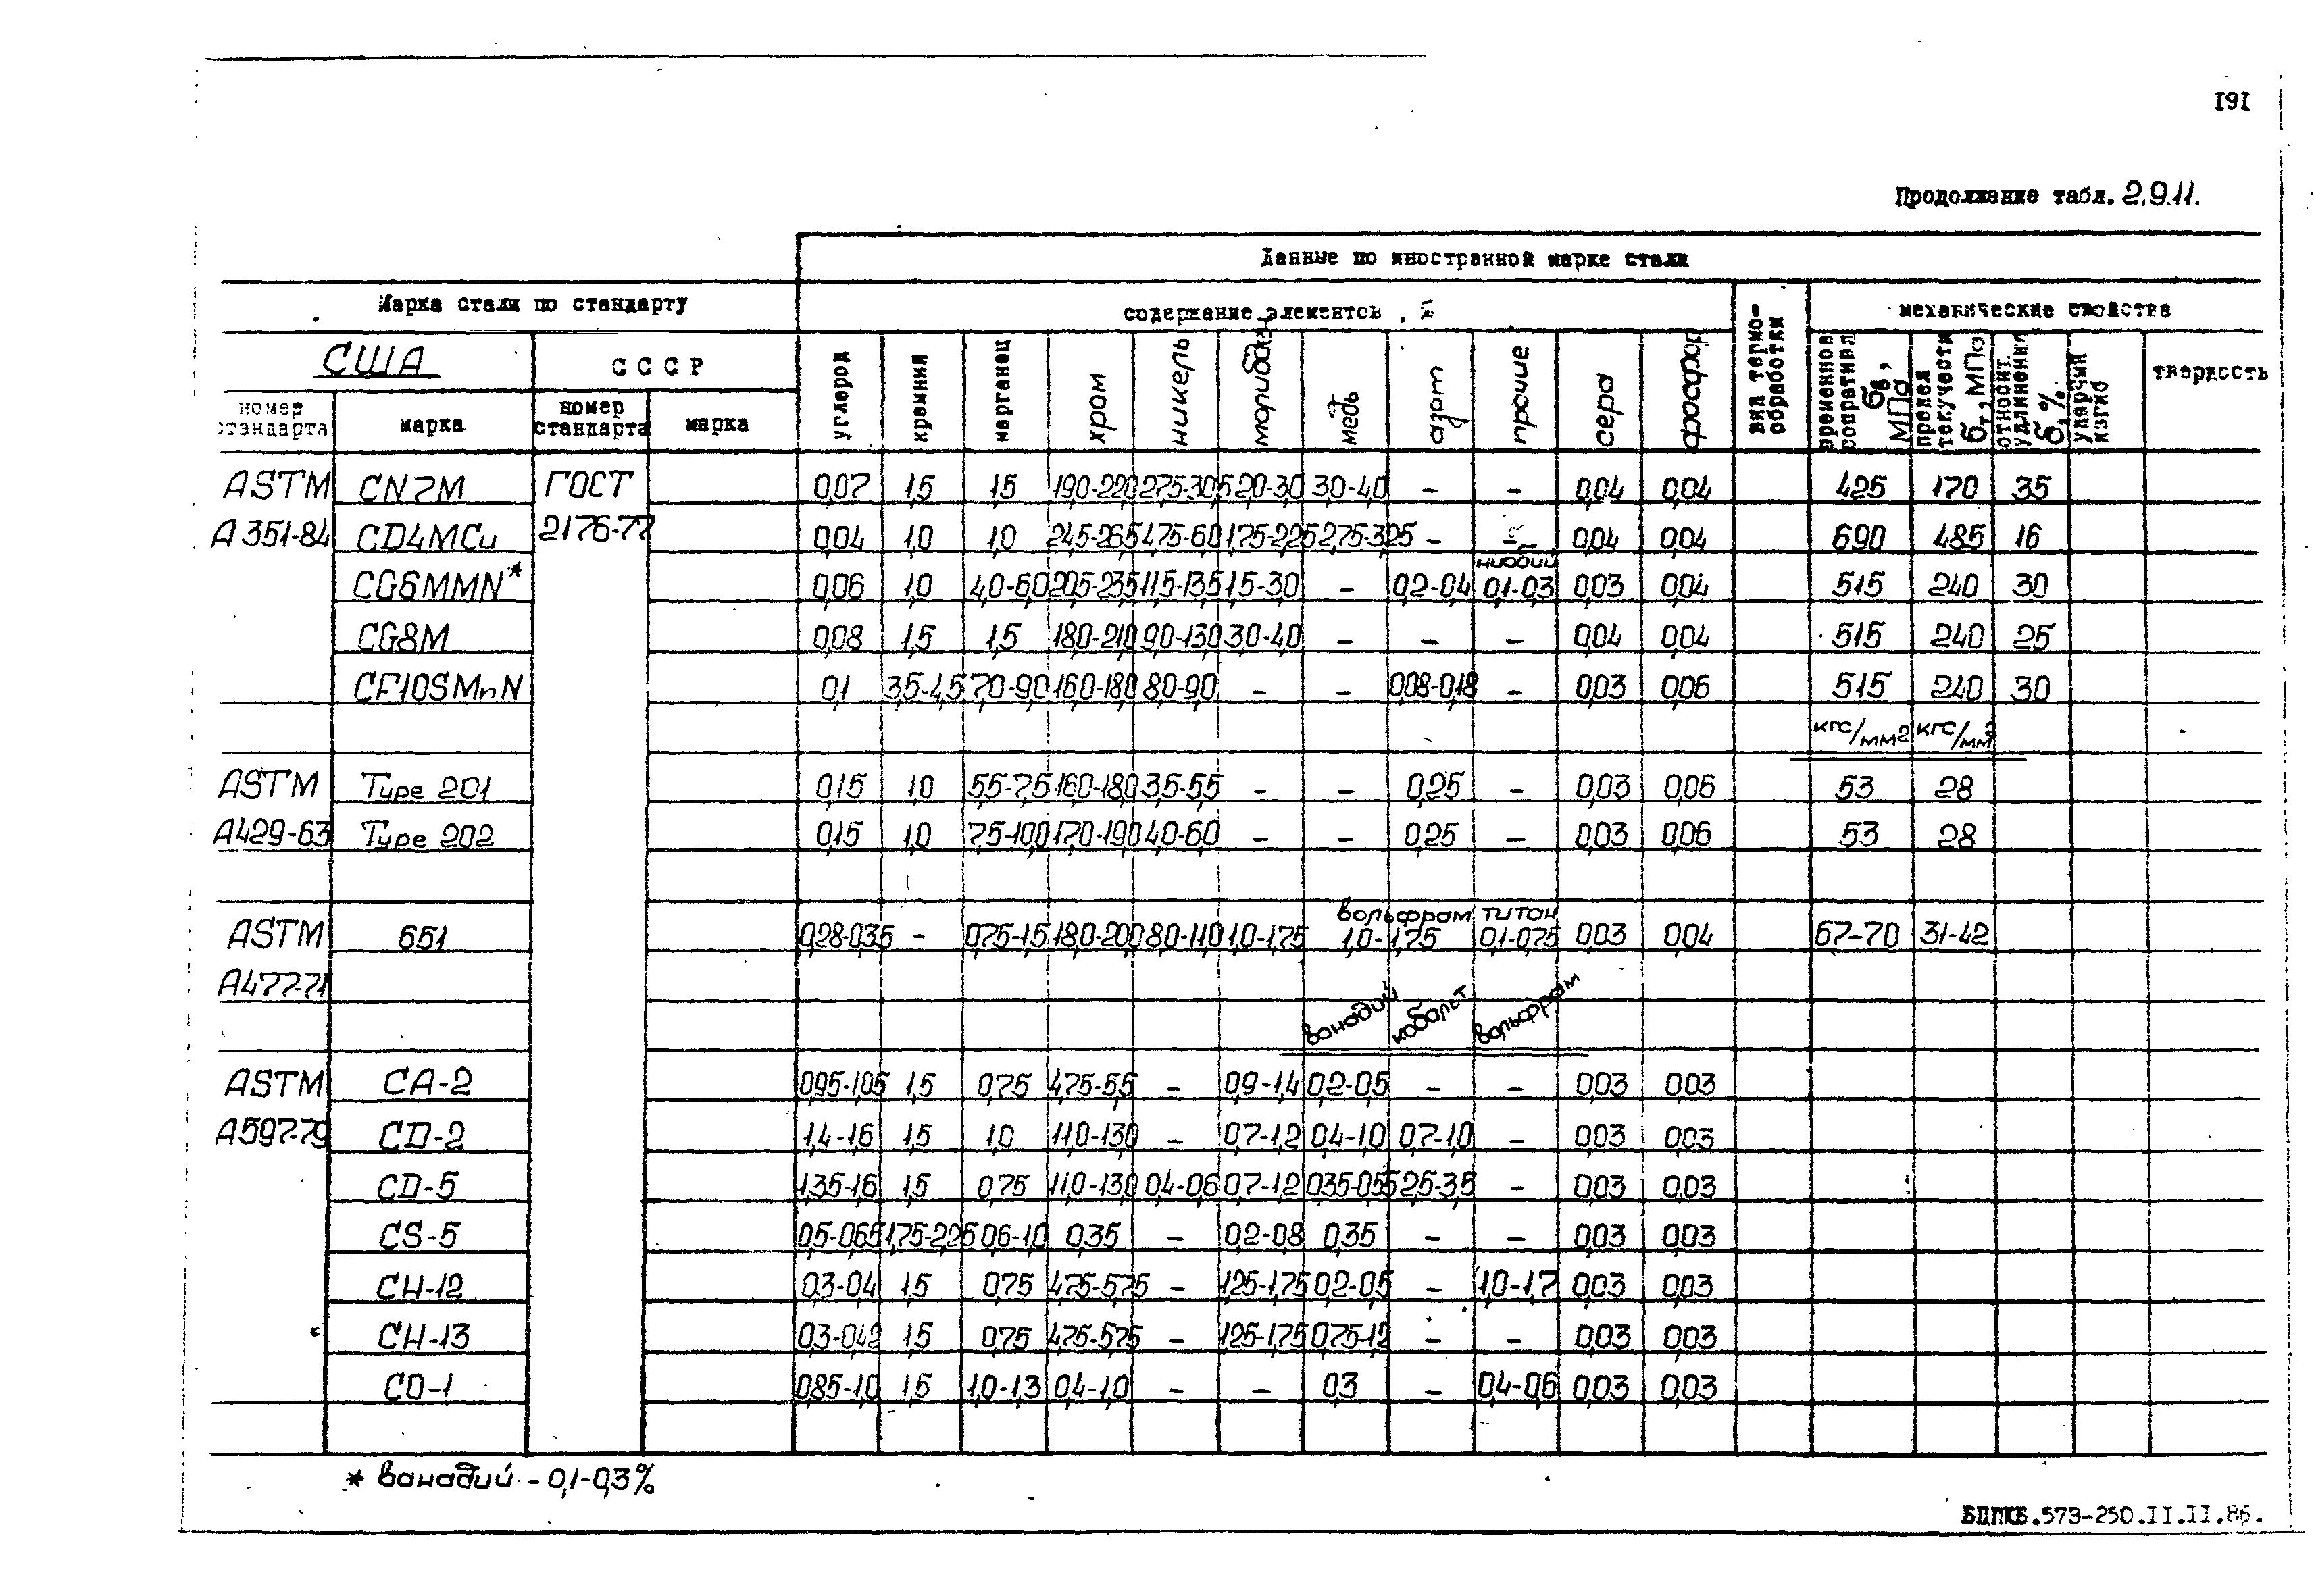 191
Продолжение табл. 2.9.11.
Данные по иностранной марке стали
Марка стали по стандарту
содержание элементов, %
вид термообработки
механические свойства
США
СССР
углерод
кремния
марганец
хром
никель
молибден
медь
азот
прочие
сера
фосфор
временное сопративл. бв, МПа
предел текучести бт, МПа
относит. удлинения б, %
ударный изгиб
твердость
номер стандарта
марка
номер стандарта
марка
ASTM CN7M ГОСТ 0,07 1,5 1,5 19,0-22,0 27,5-30,5 2,0-3,0 3,0-4,0 - - 0,04 0,04 425 170 35
A351-84 CD4MCu 2176-77 0,04 1,0 1,0 24,5-26,5 4,75-6,0 1,75-2,25 2,75-3,25 - - 0,04 0,04 690 485 16
ниобий
CG6MMN* 0,06 1,0 4,0-6,0 20,5-23,5 11,5-13,5 1,5-3,0 - 0,2-0,4 0,1-0,3 0,03 0,04 515 240 30
CG8M 0,08 1,5 1,5 18,0-21,0 9,0-13,0 3,0-4,0 - - - 0,04 0,04 515 240 25
CF10SMnN 0,1 3,5-4,5 7,0-9,0 16,0-18,0 8,0-9,0 - - 0,08-0,18 - 0,03 0,06 515 240 30
кгс/мм2 кгс/мм2
ASTM Type 201 0,15 1,0 5,5-7,5 16,0-18,0 3,5-5,5 - - 0,25 - 0,03 0,06 53 28
A429-63 Type 202 0,15 1,0 7,5-10,0 17,0-19,0 4,0-6,0 - - 0,25 - 0,03 0,06 53 28
вольфрам титан
ASTM 651 0,28-0,35 - 0,75-1,5 18,0-20,0 8,0-11,0 1,0-1,75 1,0-1,75 0,1-0,75 0,03 0,04 67-70 31-42
A477-71
ванадий кобальт вольфрам
ASTM CA-2 0,95-1,05 1,5 0,75 4,75-5,5 - 0,9-1,4 0,2-0,5 - - 0,03 0,03
A597-79 CD-2 1,4-1,6 1,5 1,0 11,0-13,0 - 0,7-1,2 0,4-1,0 0,7-1,0 - 0,03 0,03
CD-5 1,35-1,6 1,5 0,75 11,0-13,0 0,4-0,6 0,7-1,2 0,35-0,55 2,5-3,5 - 0,03 0,03
CS-5 0,5-0,65 1,75-2,25 0,6-1,0 0,35 - 0,2-0,8 0,35 - - 0,03 0,03
CH-12 0,3-0,4 1,5 0,75 4,75-5,75 - 1,25-1,75 0,2-0,5 - 1,0-1,7 0,03 0,03
CH-13 0,3-0,42 1,5 0,75 4,75-5,75 - 1,25-1,75 0,75-1,2 - - 0,03 0,03
CO-1 0,85-1,0 1,5 1,0-1,3 0,4-1,0 - - 0,3 - 0,4-0,6 0,03 0,03
* ванадий - 0,1-0,3%
БППКБ.573-250.II.II.86.